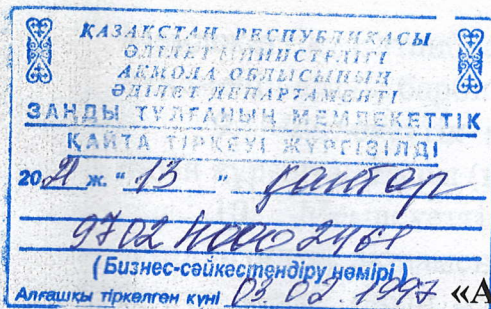 ҚАЗАҚСТАН РЕСПУБЛИКАСЫ
ӘДІЛЕТ МИНИСТРЛІГІ
АҚМОЛА ОБЛЫСЫНЫҢ
ӘДІЛЕТ ДЕПАРТАМЕНТІ
ЗАҢДЫ ТҰЛҒАНЫҢ МЕМЛЕКЕТТІК
ҚАЙТА ТІРКЕУІ ЖҮРГІЗІЛДІ
20 ж. "13" қантар
(Бизнес-сәйкестендіру нөмірі)
Алғашқы тіркелген күні 03.02.1997 «А